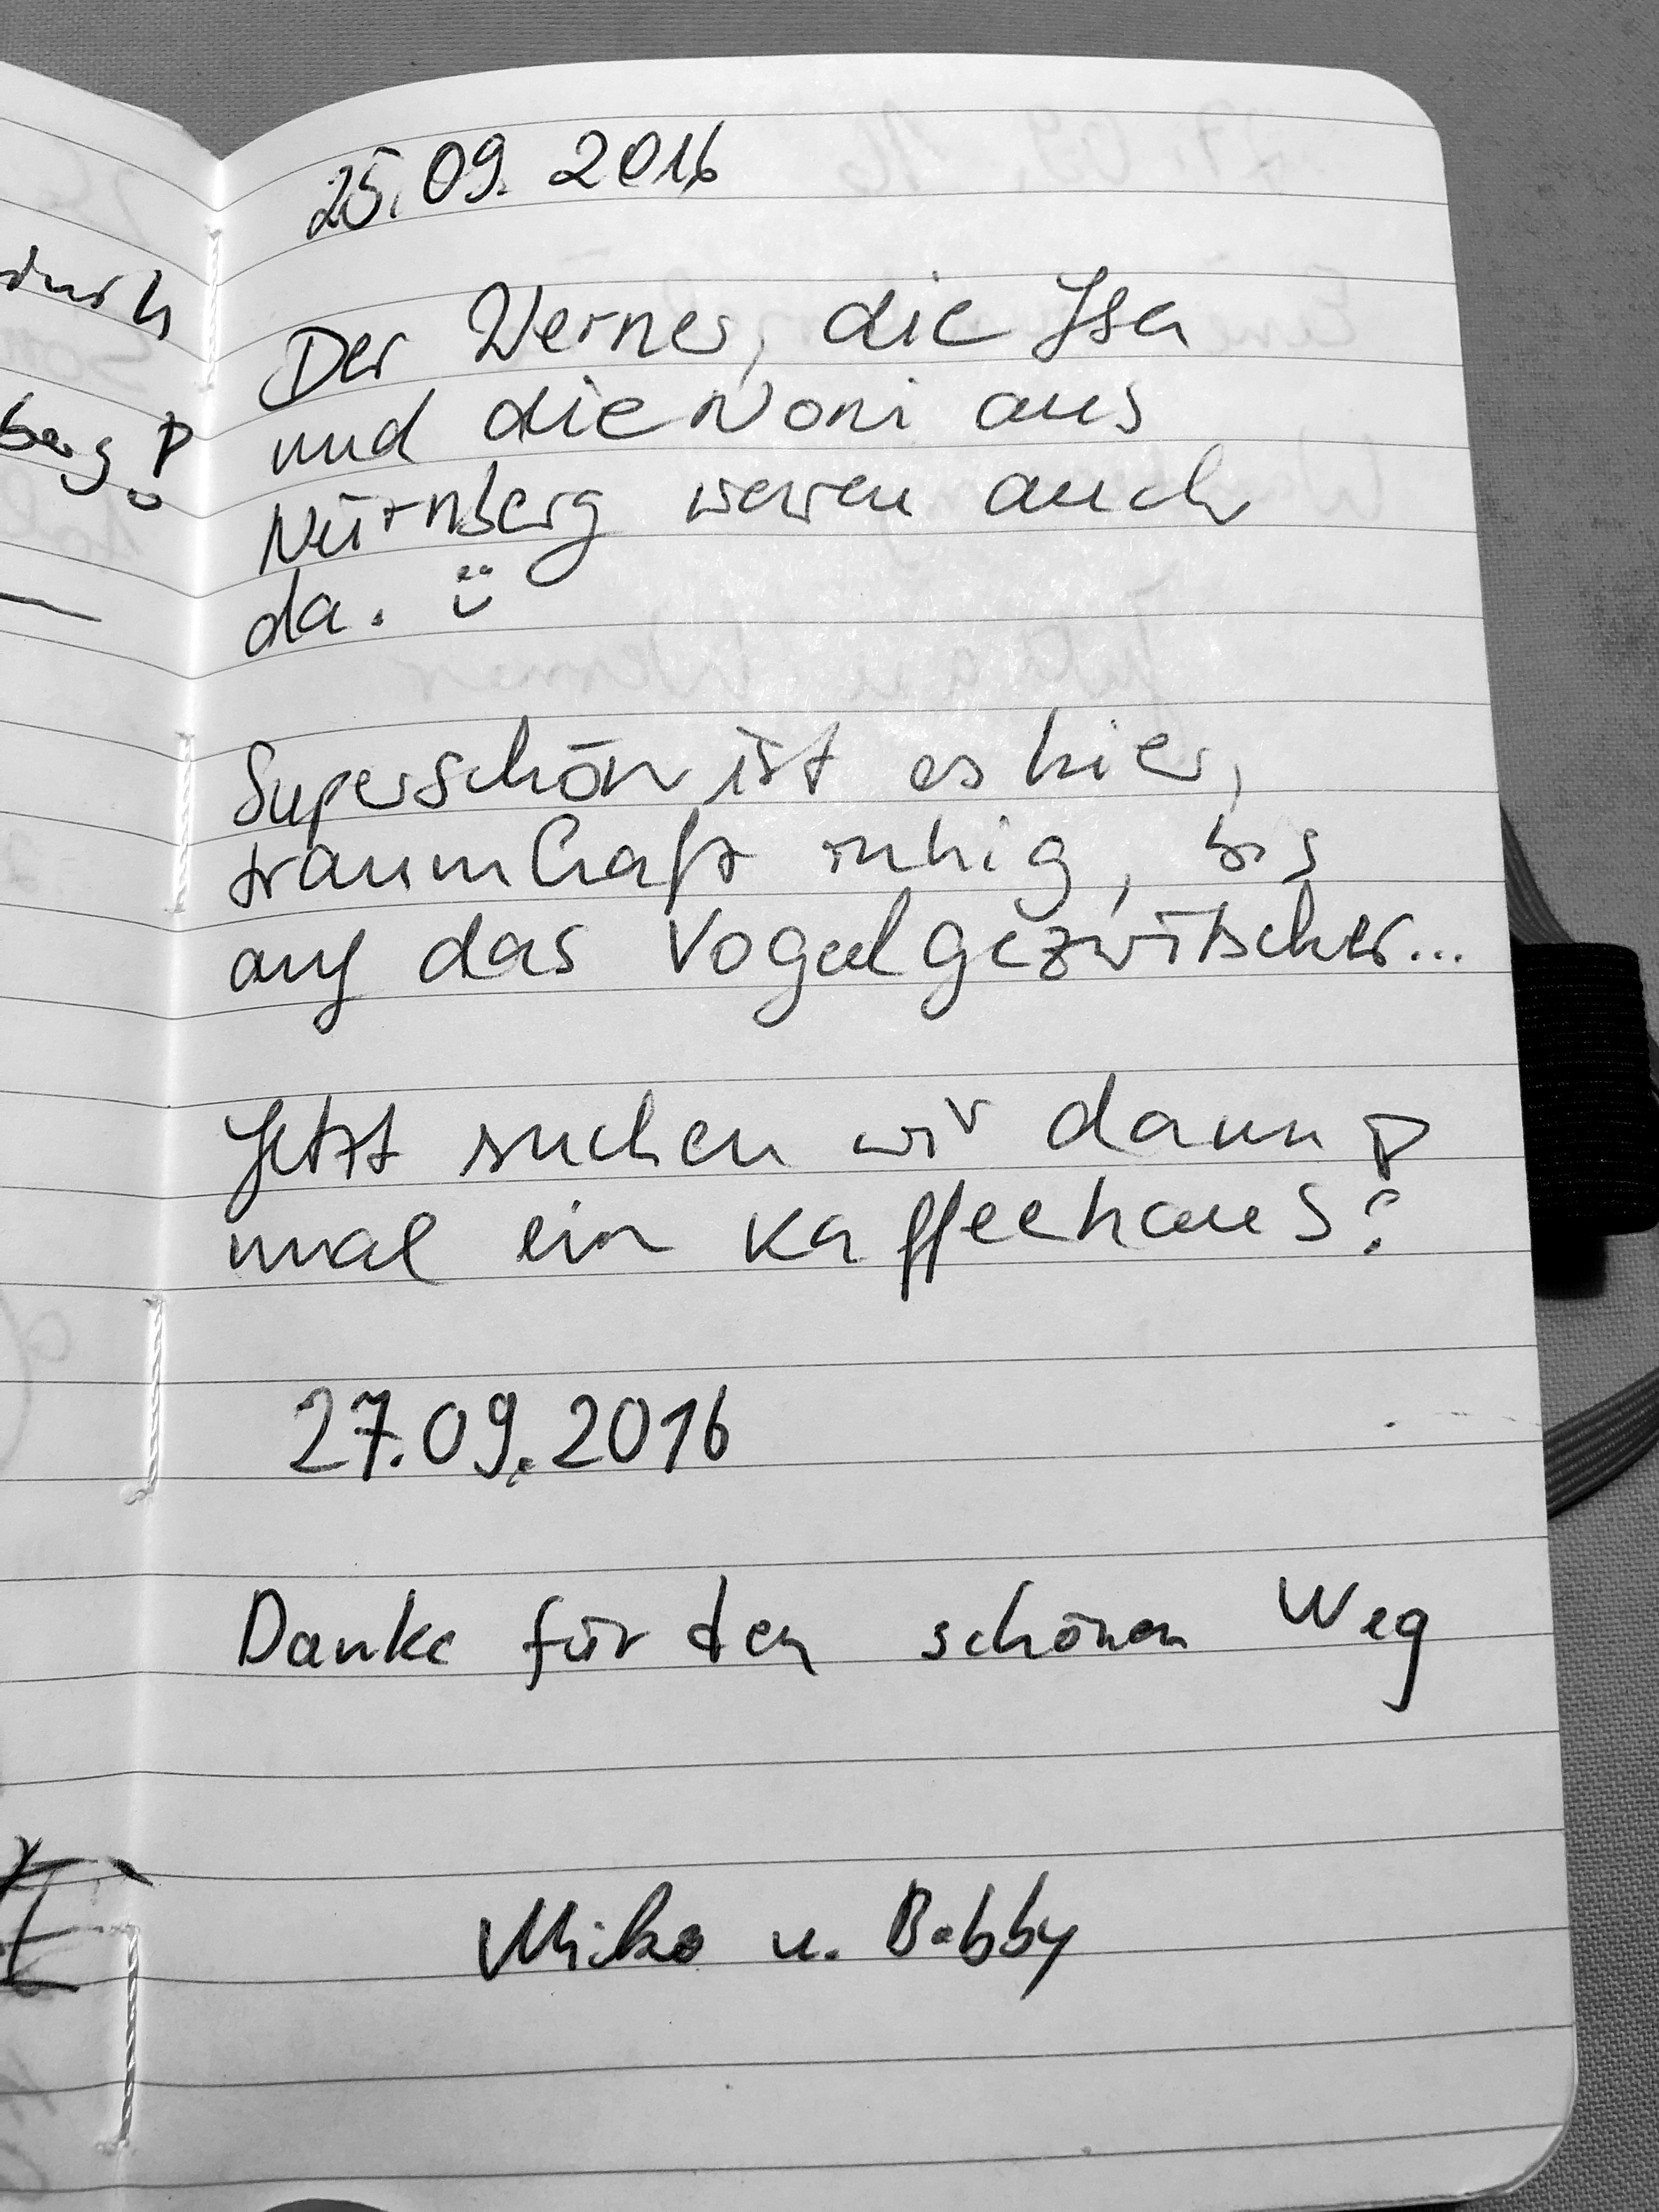 25.09.2016
Der Werner, die Isa
und die Noni aus
Nürnberg waren auch
da.
Superschön ist es hier,
traumhaft ruhig, bis
auf das Vogelgezwitscher...
Jetzt suchen wir dann
mal ein Kaffeehaus!
27.09.2016
Danke für den schönen Weg
Miko u. Bobby